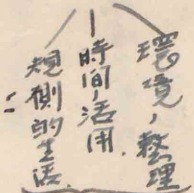 環境,整理
時間,活用
規則的生活